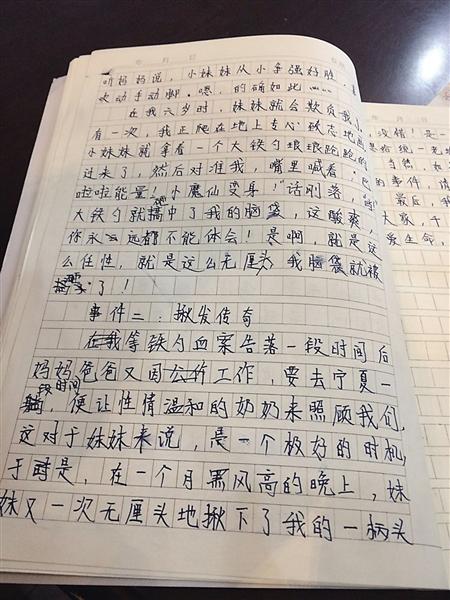 听妈妈说，小妹妹从小争强好胜，喜
欢动手动脚。嗯，的确如此……
在我六岁时，妹妹就会欺负我
有一次，我正爬在地上专心致志地画
小妹妹就拿着一个大铁勺琅琅跑跑的
过来了，然后对准我，嘴里喊着：巴
啦啦能量！小魔仙变身！”话刚落，
大铁勺就搞中了我的脑袋，这酸爽，
你永远都不能体会！是啊，就是这
么任性，就是这么无厘头，我脑袋就被
了！
事件二：揪发传奇
在我等铁勺血案告落一段时间后
妈妈爸爸又因公幹工作，要去宁夏一
段时间，便让性情温和的奶奶来照顾我们，
这对于妹妹来说，是一个极好的时机，
于是，在一个月黑风高的晚上，妹
妹又一次无厘头地揪下了我的一柄头
没错！是一
当然，如
的事件，
最后，我
大家，千
爱生命，